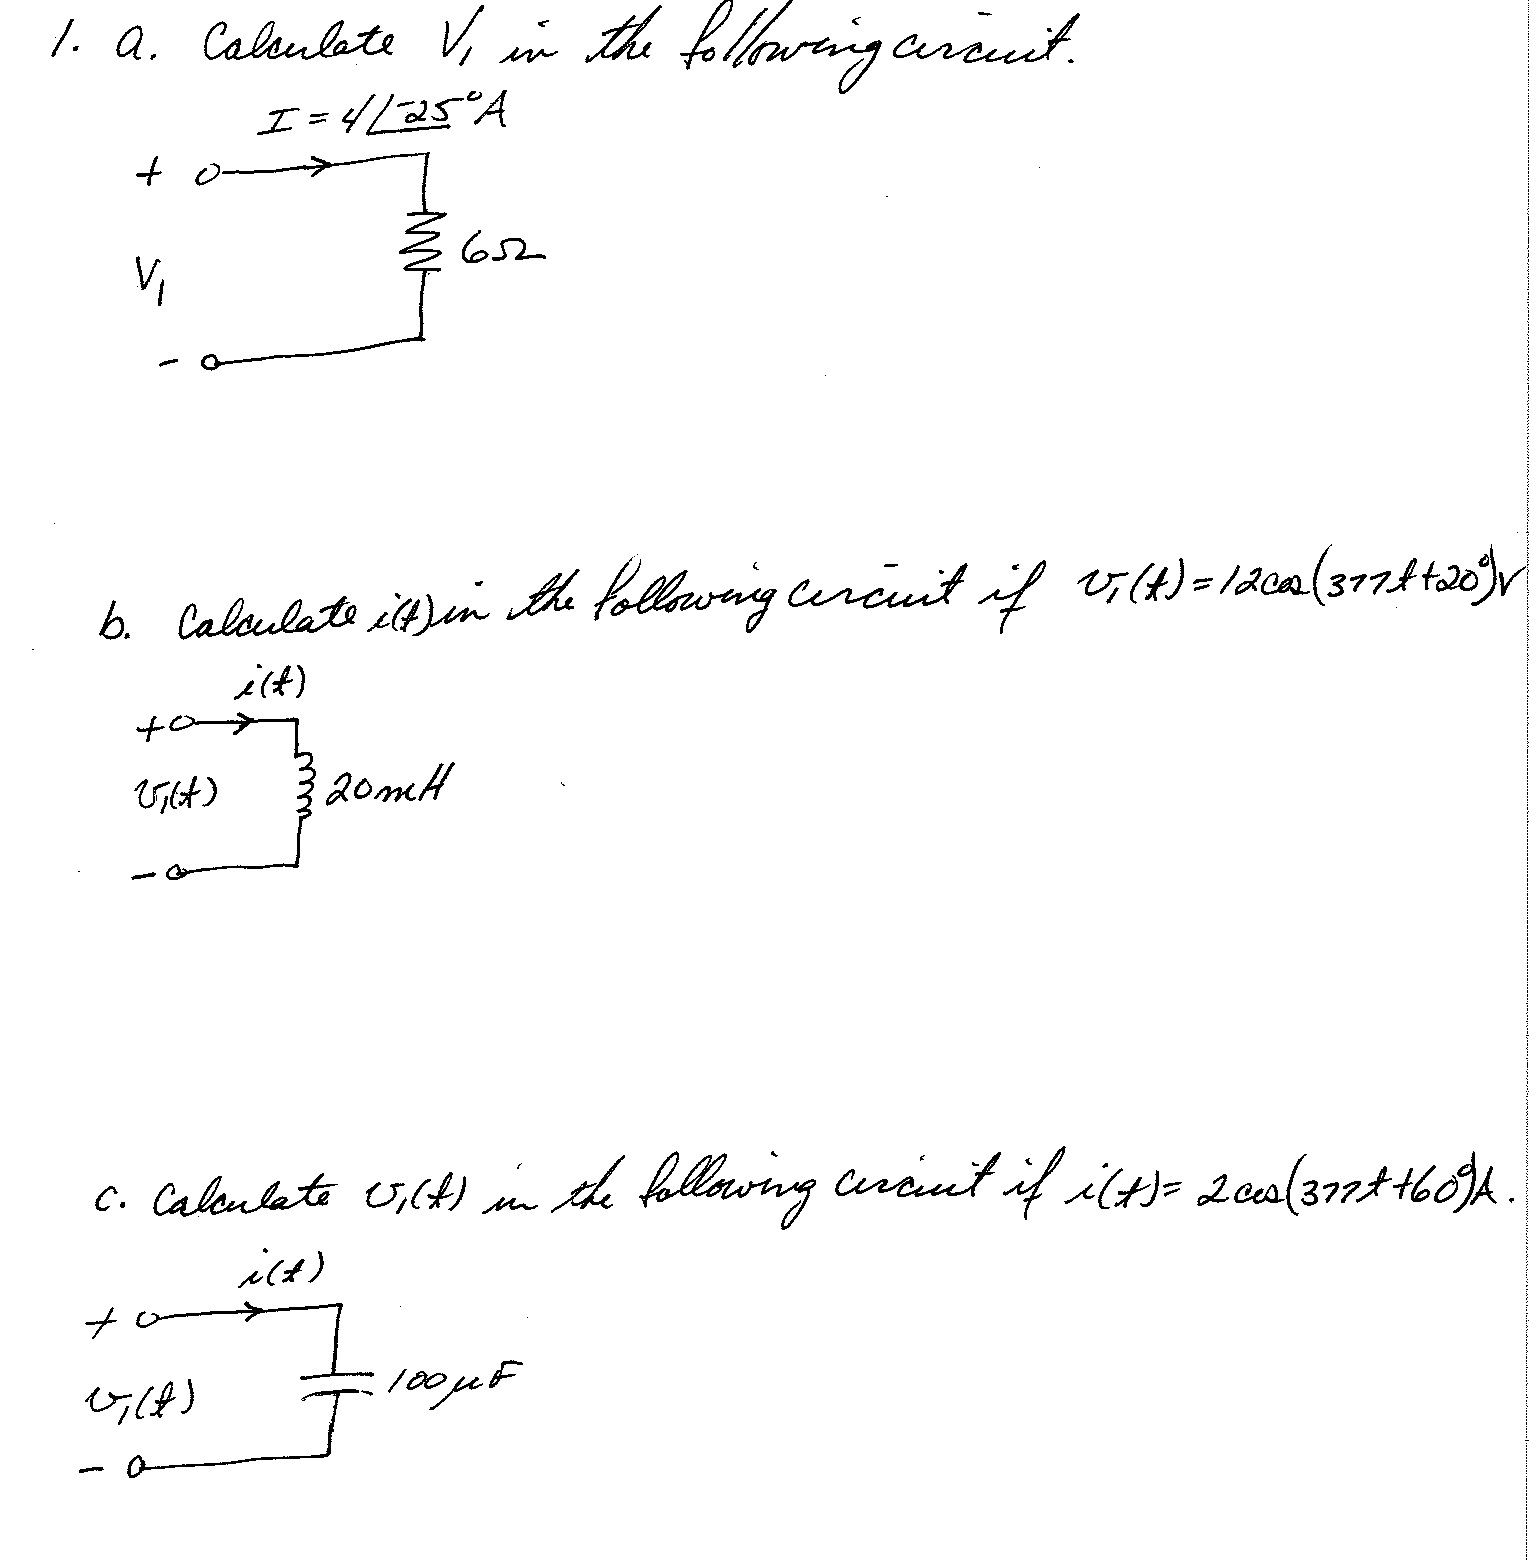 1. a. Calculate V₁ in the following circuit.
I = 4∠-25° A
+
6Ω
V₁
-
b. Calculate i(t) in the following circuit if v₁(t) = 12 cos(377t+20°)V
i(t)
+
v₁(t) 20mH
-
c. Calculate v₁(t) in the following circuit if i(t) = 2 cos(377t+60°)A.
i(t)
+
v₁(t) 100μF
-